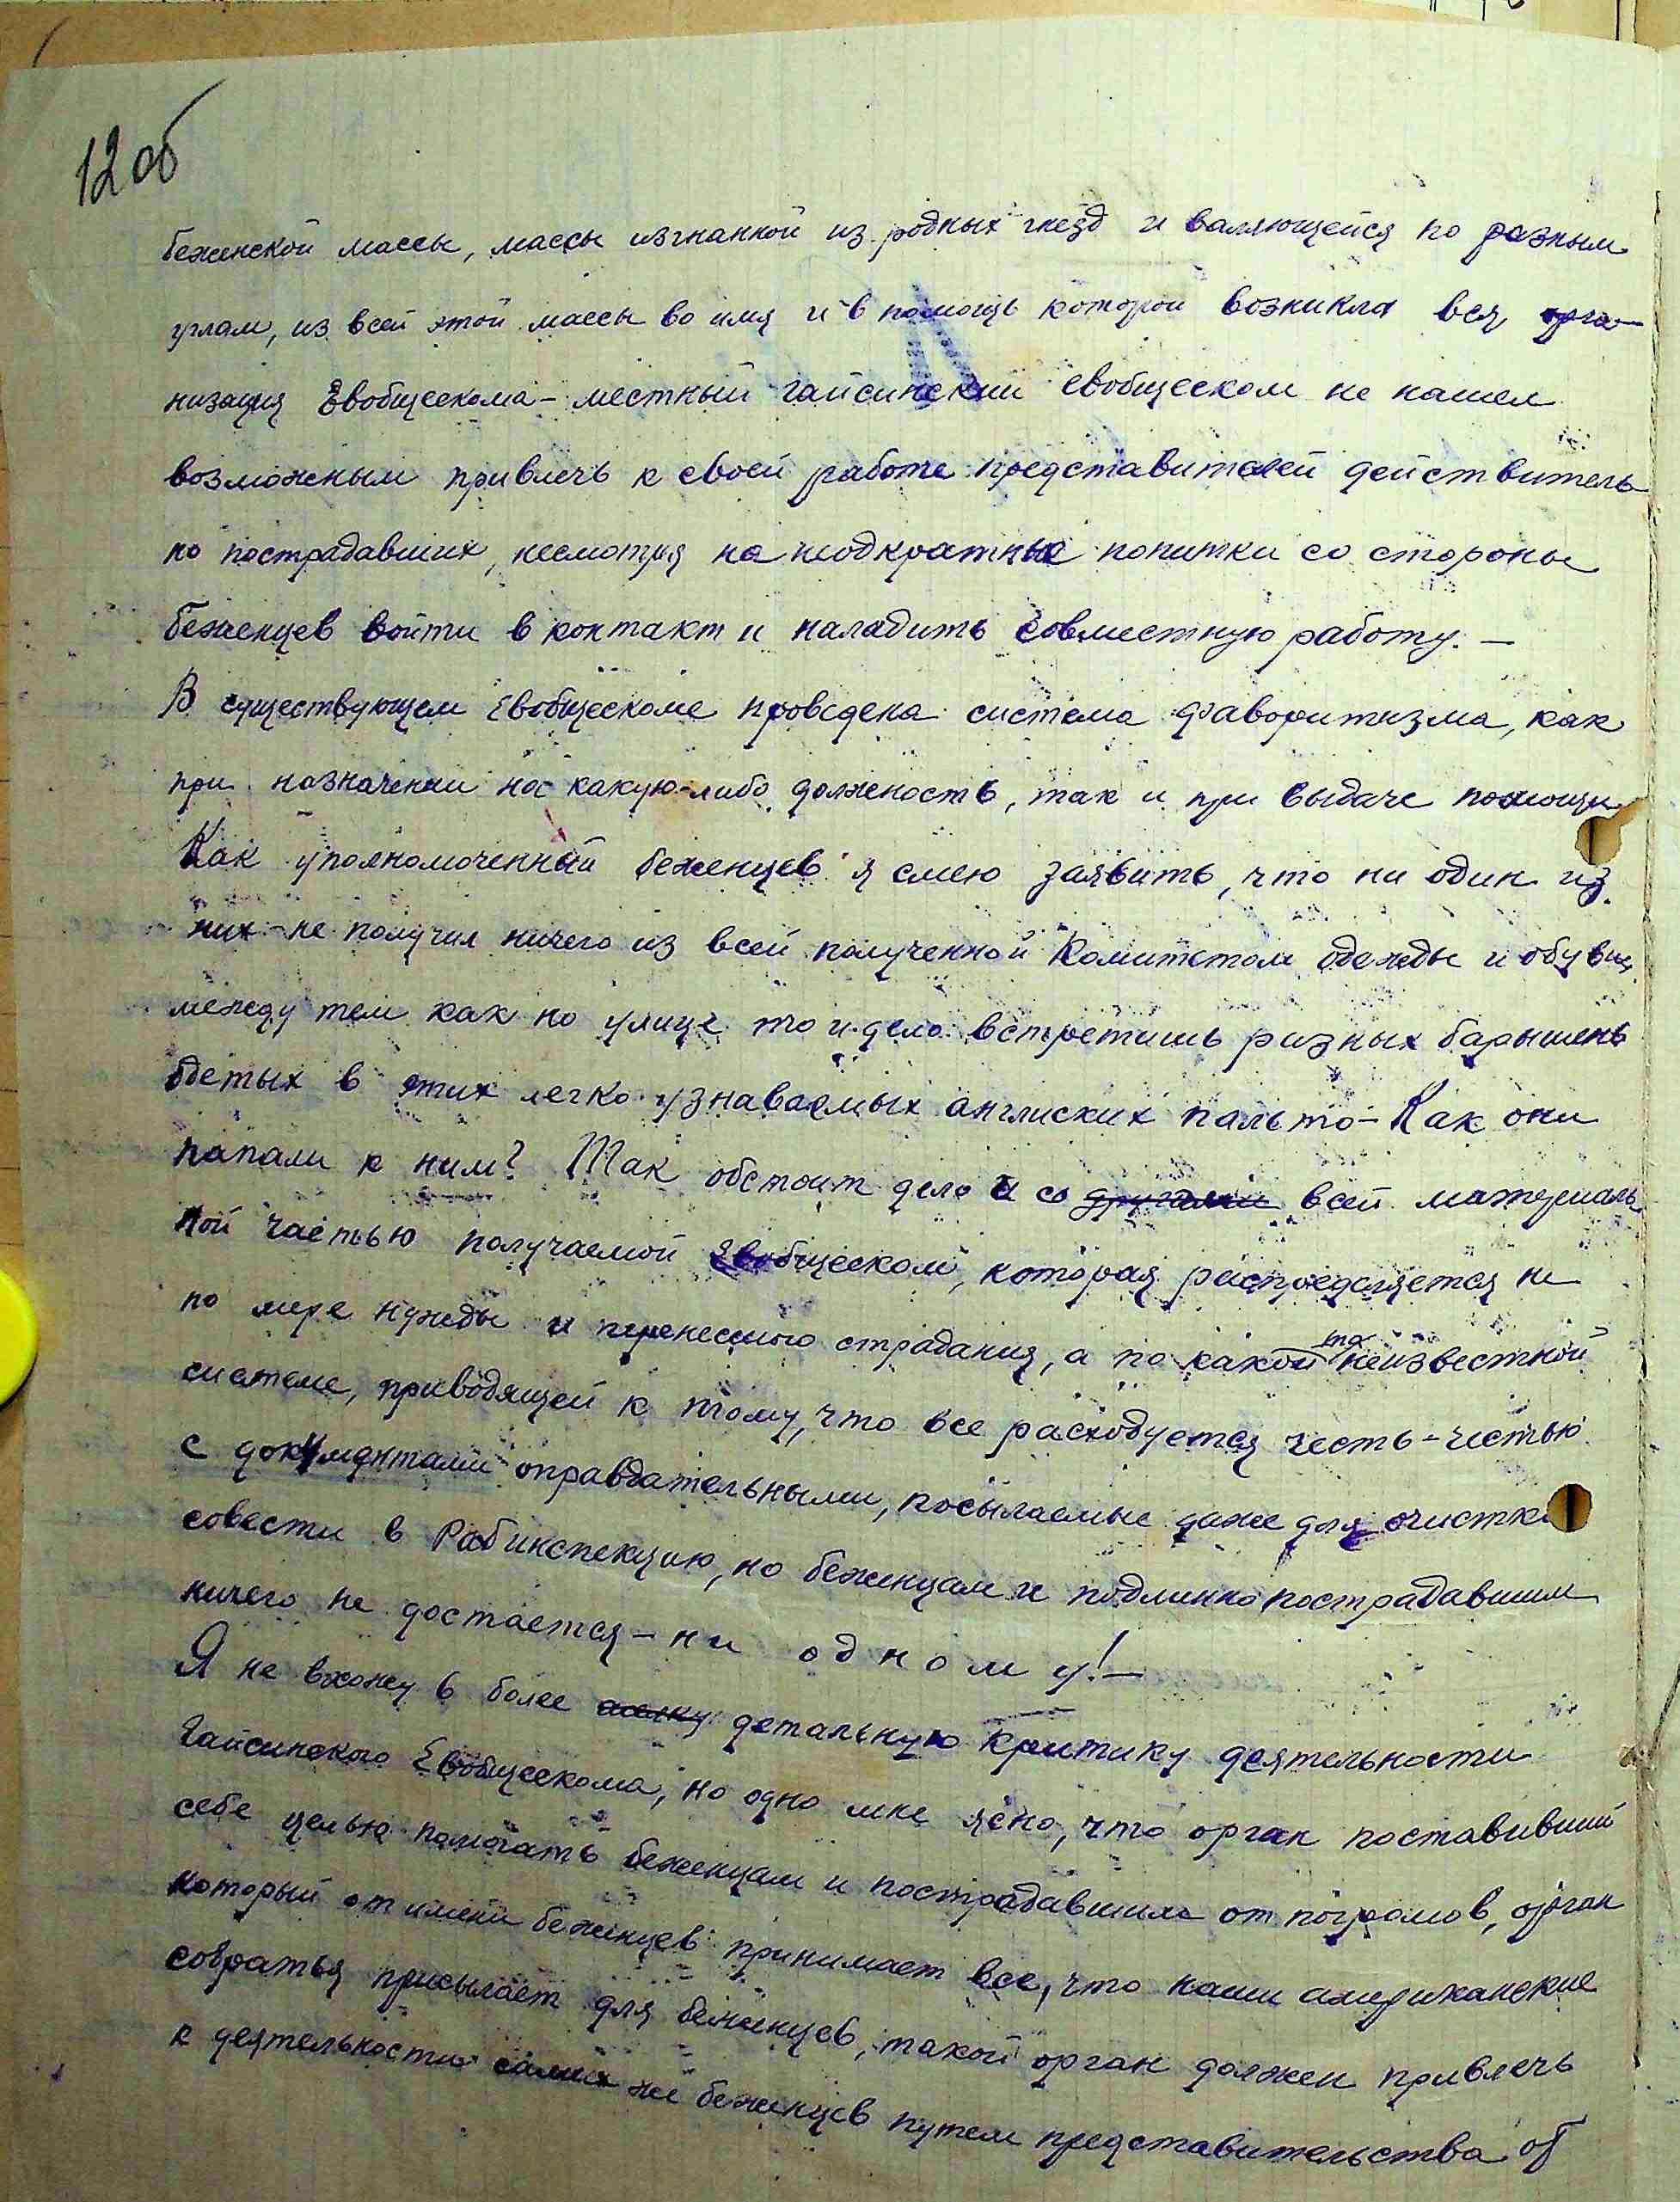 12 об
беженской массы, массы изгнанной из родных гнезд и валяющейся по разным
углам, из всей этой массы во имя и в помощь которой возникла вся орга-
низация Евобщескома - местный гайсинский евобщеском не нашел
возможным привлечь к своей работе представителей действитель-
но пострадавших, несмотря на неодкратные попитки со стороны
беженцев войти в контакт и наладить совместную работу. -
В существующем Евобщескоме проведена система фаворитизма, как
при назначении на какую-либо должность, так и при выдаче помощи
Как уполномоченный беженцев я смею заявить, что ни один из
них не получил ничего из всей полученной Комитетом одежды и обуви,
между тем как на улице то и дело встретишь разных барышень
одетых в этих легко узнаваемых англиских пальто - Как они
папали к ним? Так обстоит дело и со другими всей материаль-
ной частью получаемой Евобщеском, которая распределяется не
по мере нужды и перенесеного страдания, а по какой то неизвестной
системе, приводящей к тому, что все расходуется честь-честью
с документами оправдательными, посылаемые даже для очистки
совести в Рабинспекцию, но беженцам и подлинно пострадавшим
ничего не достается - ни одному! -
Я не вхожу в более детальную критику деятельности
Гайсинского Евобщескома, но одно мне ясно, что орган поставивший
себе целью помогать беженцам и пострадавшим от погромов, орган
который от имени беженцев принимает все, что наши американские
собратья присылает для беженцев, такой орган должен привлечь
к деятельности самих же беженцев путем представительства об